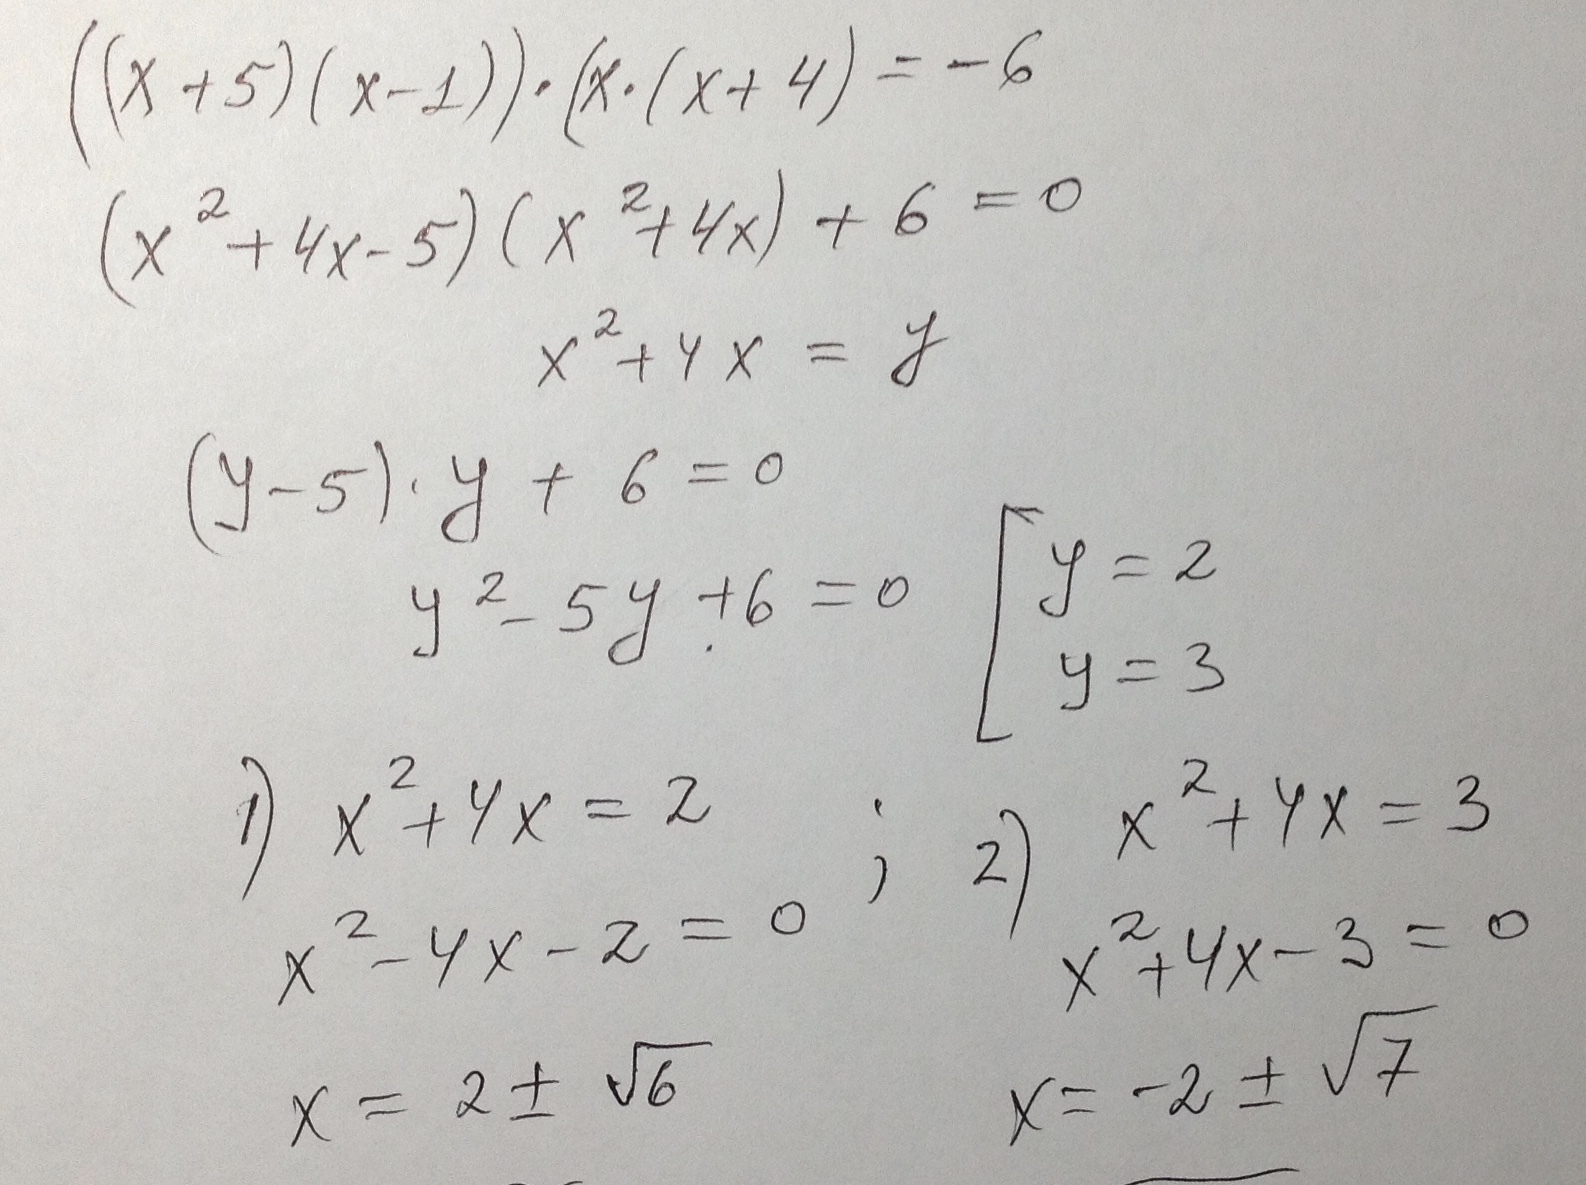 ((x+5)(x-1))·(x·(x+4)=-6
(x²+4x-5)(x²+4x)+6=0
x²+4x=y
(y-5)·y+6=0
y²-5y+6=0 [y=2
y=3
1) x²+4x=2 ; 2) x²+4x=3
x²-4x-2=0 x²+4x-3=0
x=2±√6 x=-2±√7